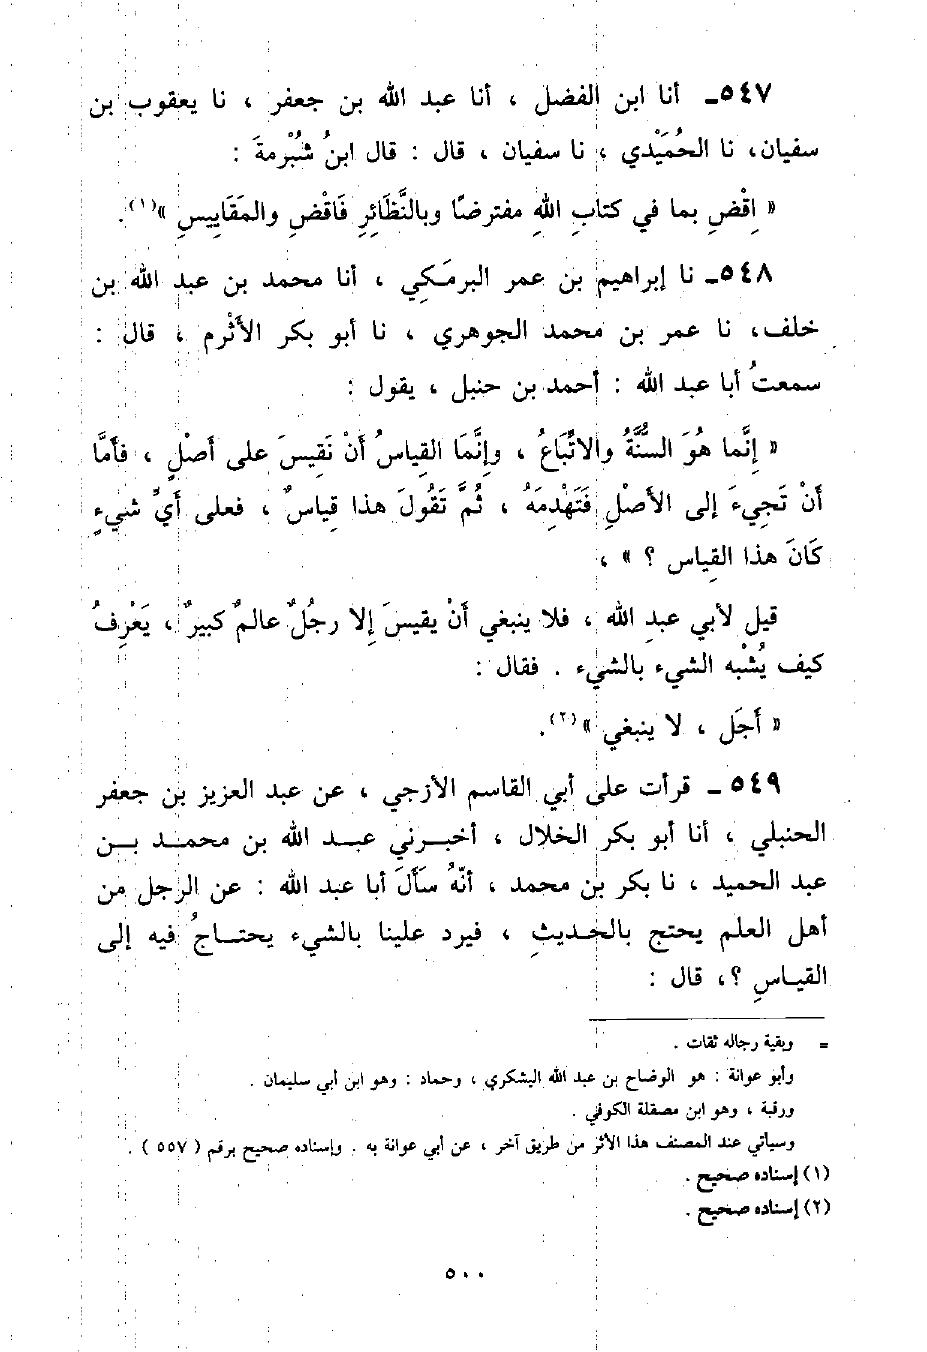 ٥٤٧ـ أنا ابن الفضل ، أنا عبد الله بن جعفر ، نا يعقوب بن
سفيان، نا الحُمَيْدي ، نا سفيان ، قال : قال ابنُ شُبْرمةَ :
« اِقْضِ بما في كتابِ اللهِ مفترضًا وبالنَّظَائِرِ فَاقْضِ والمَقَاييسِ »(١).
٥٤٨ـ نا إبراهيم بن عمر البرمَكي ، أنا محمد بن عبد الله بن
خلف، نا عمر بن محمد الجوهري ، نا أبو بكر الأَثْرم ، قال :
سمعتُ أبا عبد الله : أحمد بن حنبل ، يقول :
« إنَّما هُوَ السُّنَّةُ والاتِّبَاعُ ، وإنَّمَا القِياسُ أَنْ نَقِيسَ على أصْلٍ ، فأمَّا
أنْ تَجِيءَ إلى الأصْلِ فَتَهْدِمَهُ ، ثُمَّ تَقُولَ هذا قياسٌ ، فعلى أَيِّ شيءٍ
كَانَ هذا القِياس ؟ » ،
قيل لأبي عبدِ الله ، فلا ينبغي أَنْ يقيسَ إِلا رجُلٌ عالمٌ كبيرٌ ، يَعْرِفُ
كيف يُشْبْه الشيء بالشيء . فقال :
« أَجَل ، لا ينبغي »(٢).
٥٤٩ ـ قرأت على أبي القاسم الأزجي ، عن عبد العزيز بن جعفر
الحنبلي ، أنا أبو بكر الخلال ، أخبرني عبد الله بن محمد بن
عبد الحميد ، نا بكر بن محمد ، أنّهُ سَأَلَ أبا عبد الله : عن الرجل من
أهل العلم يحتج بالحديثِ ، فيرد علينا بالشيء يحتاجُ فيه إلى
القياسِ ؟، قال :
= وبقية رجاله ثقات .
وأبو عوانة : هو الوضاح بن عبد الله اليشكري ، وحماد : وهو ابن أبي سليمان .
ورقبة ، وهو ابن مصقلة الكوفي .
وسيأتي عند المصنف هذا الأثر من طريق آخر ، عن أبي عوانة به . وإسناده صحيح برقم ( ٥٥٧ ) .
(١) إسناده صحيح .
(٢) إسناده صحيح .
٥٠٠